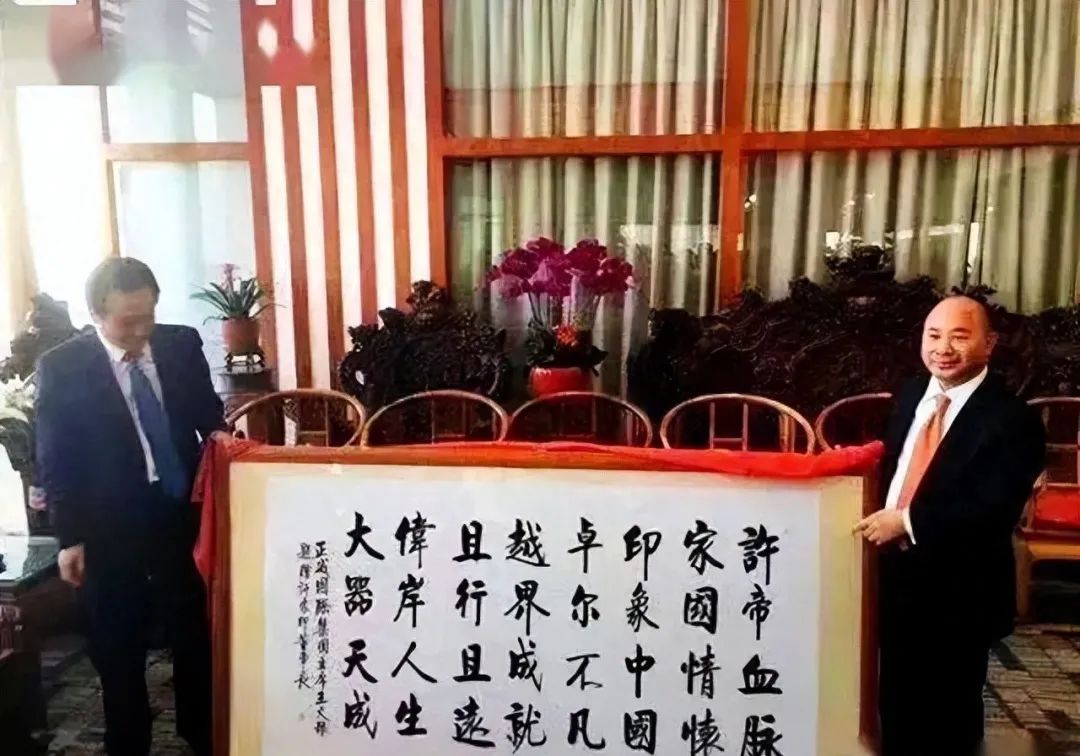 許帝血脉
家國情懷
印象中國
卓尔不凡
越界成就
且行且遠
偉岸人生
大器天成
正威国际集团主席王文银
題贈许家印董事长